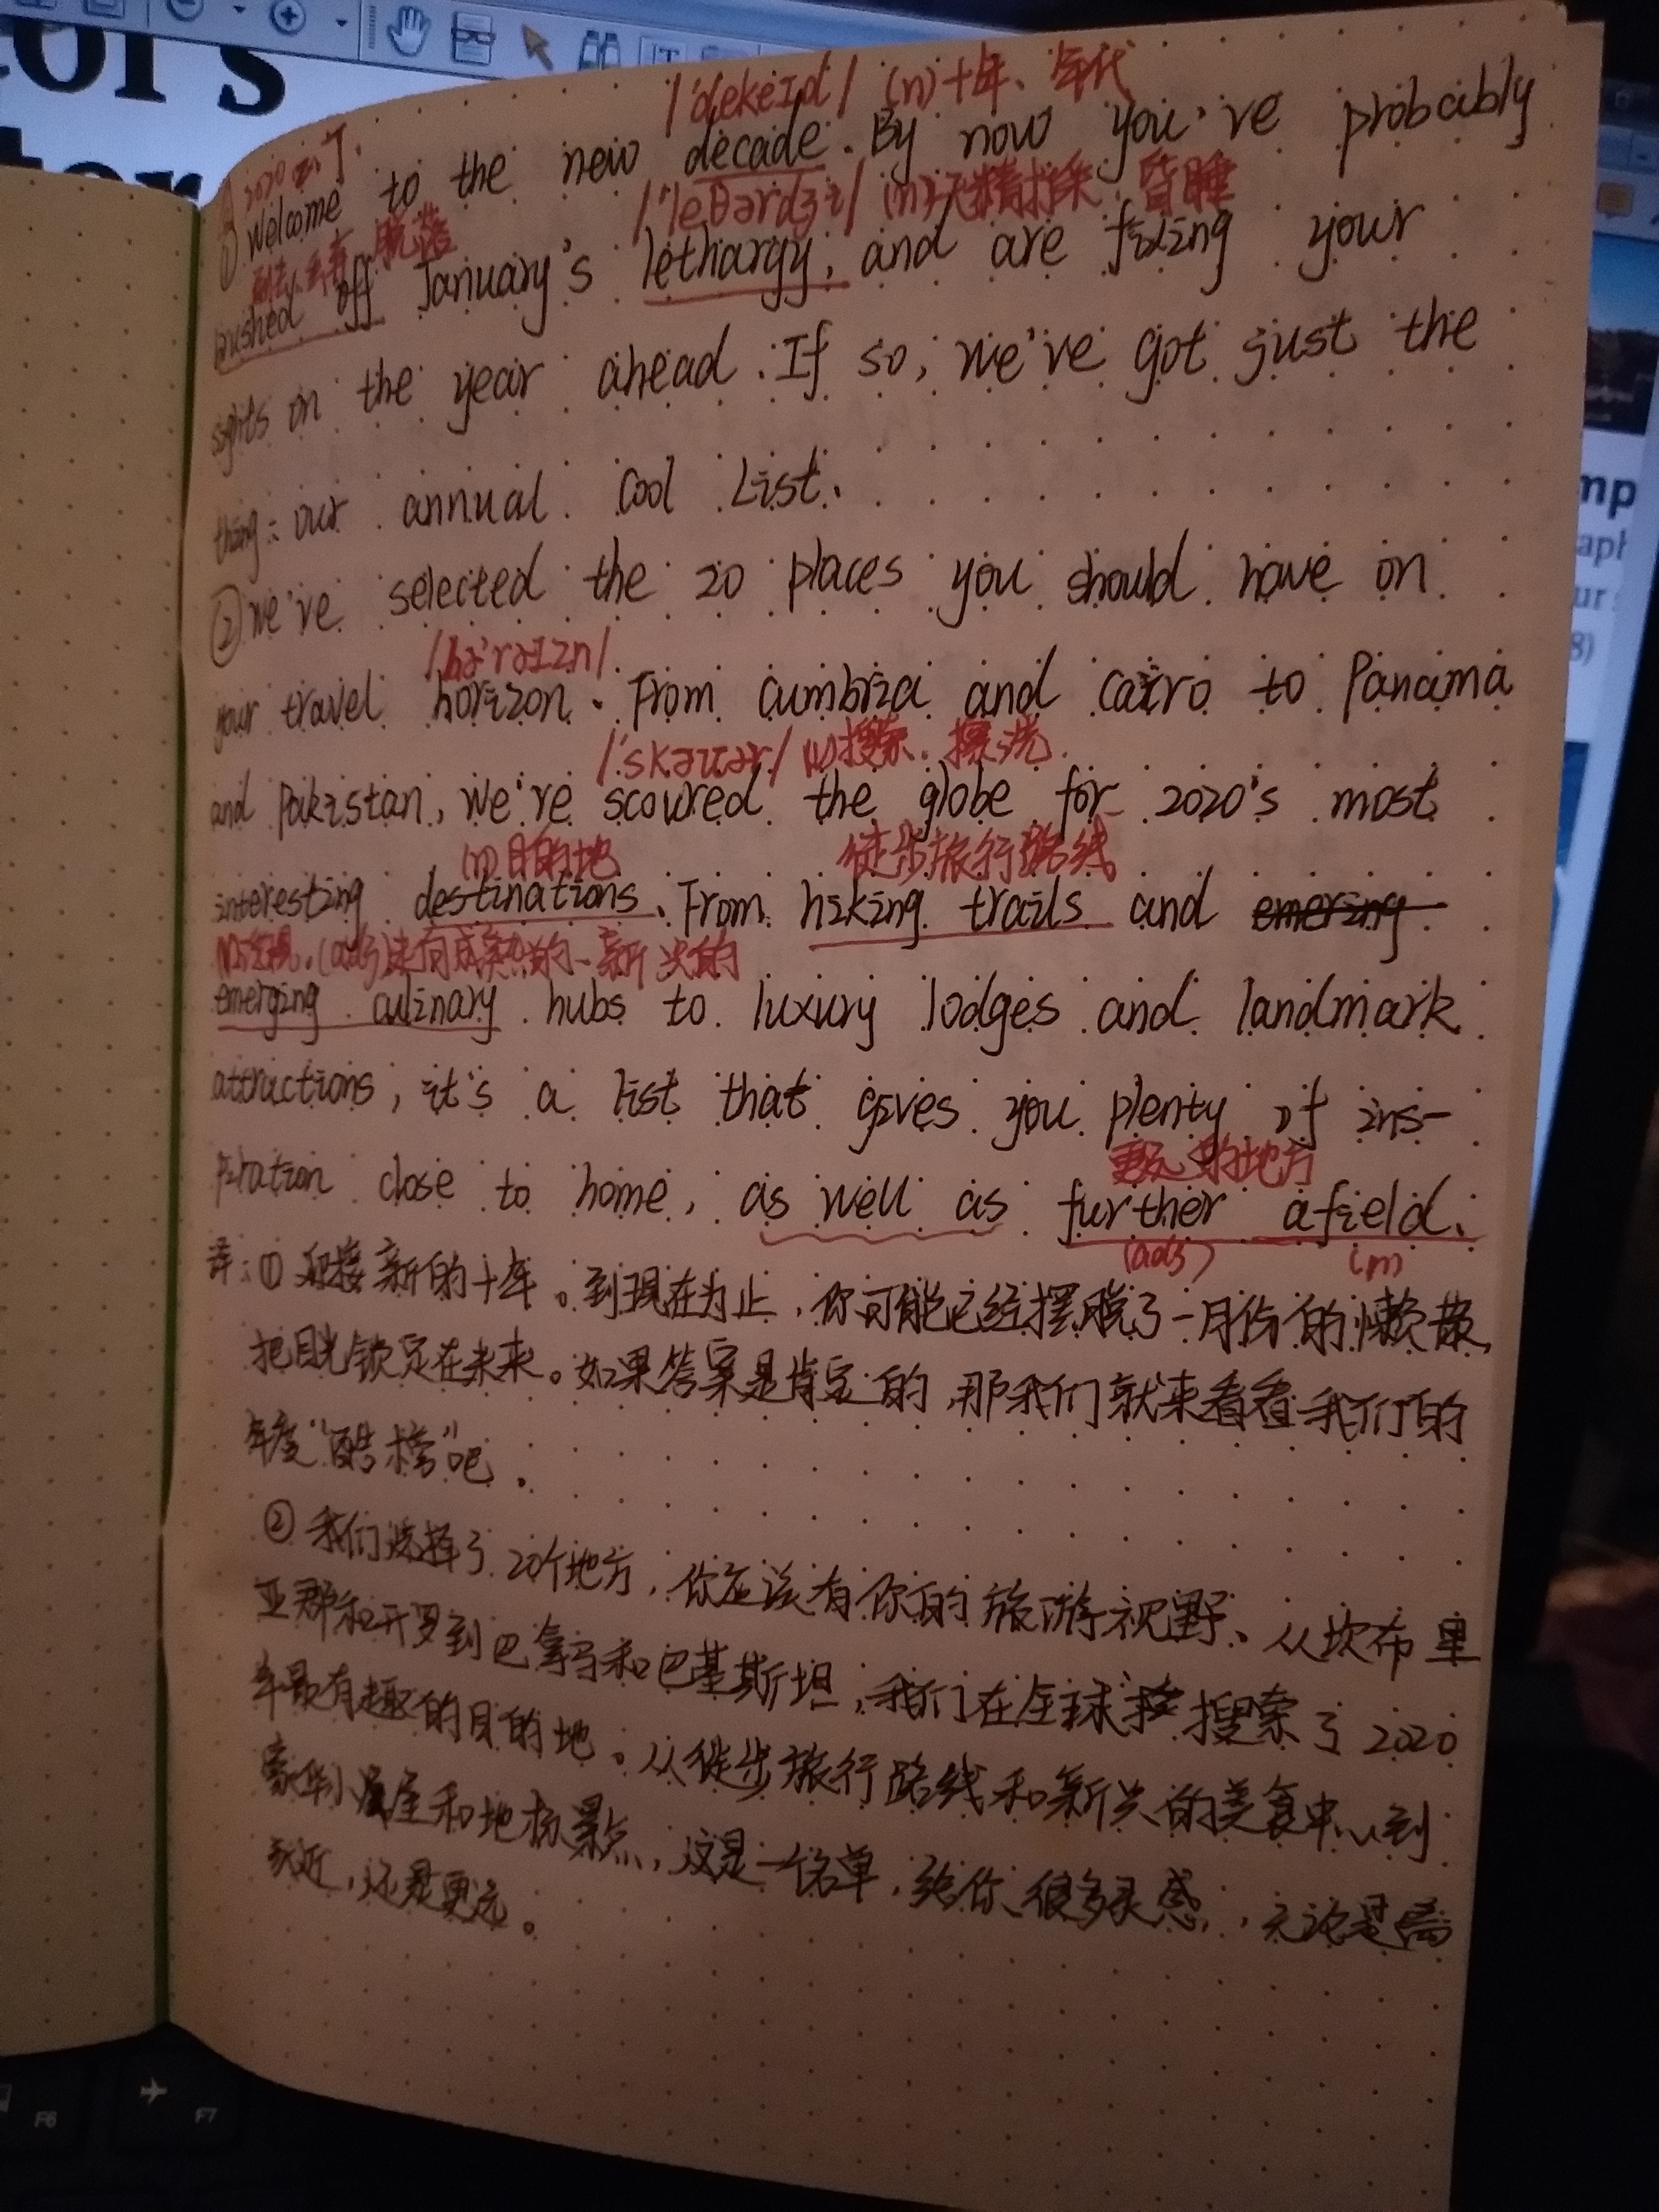 tor's
/'dekeId/ (n)十年、年代
2020 了.
① Welcome to the new decade. By now you've probably
/'leθərdʒi/ (n)无精打采、昏睡
脱落
brushed off January's lethargy, and are fixing your
sights on the year ahead. If so, we've got just the
thing: our annual Cool List.
② We've selected the 20 places you should have on
/hə'raIzn/
your travel horizon. From Cumbria and Cairo to Panama
/'skauər/ (v)搜索、擦洗.
and Pakistan, we're scoured the globe for 2020's most
(n)目的地 徒步旅行路线
interesting destinations. From hiking trails and emering
(adj) 新兴的
emerging culinary hubs to luxury lodges and landmark
attractions, it's a list that gives you plenty of ins-
更远的地方
piration close to home, as well as further afield.
(adj) (n)
译:① 迎接新的十年。到现在为止,你可能已经摆脱了一月份的懒散,
把目光锁定在未来。如果答案是肯定的,那我们就来看看我们的
年度"酷榜"吧.
② 我们选择了20个地方,你应该有你的旅游视野、从坎布里
亚郡和开罗到巴拿马和巴基斯坦,我们在全球搜索了2020
年最有趣的目的地。从徒步旅行路线和新兴的美食中心到
豪华小屋和地标景点,这是一份名单,给你很多灵感,无论是离
家近,还是更远。
F6
F7